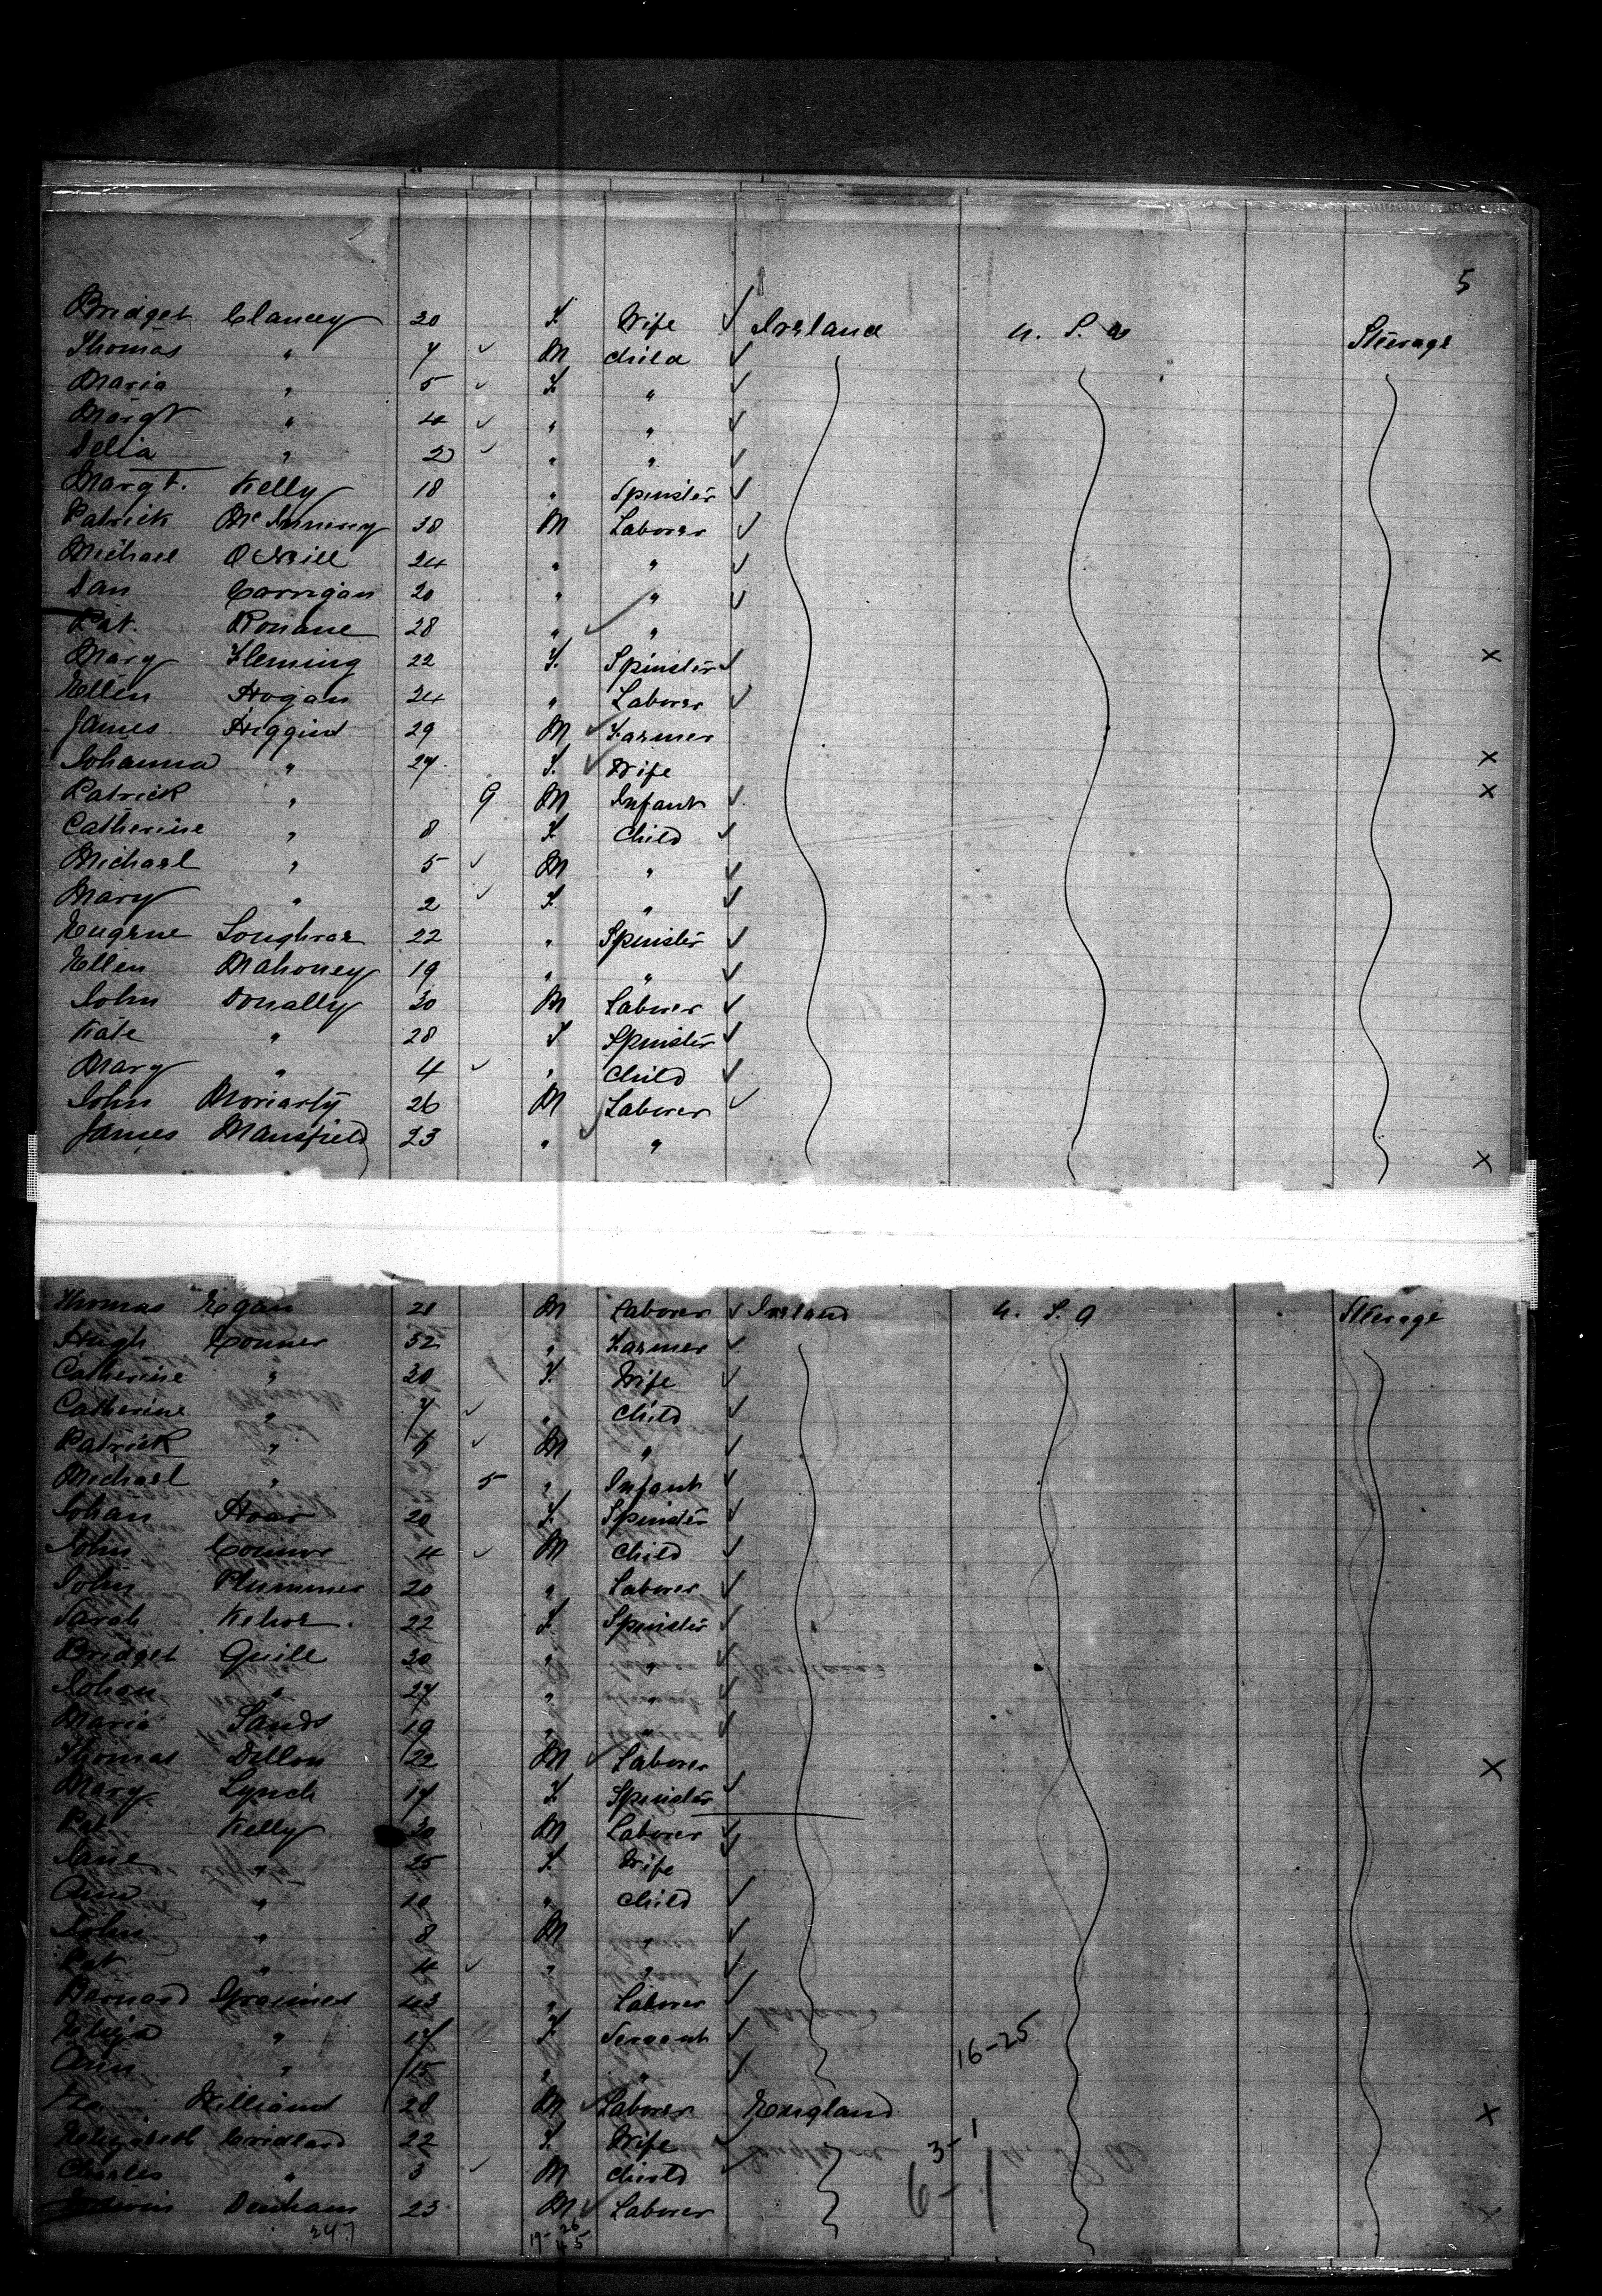 5
Bridget Clancey 30 F. Wife ✓ Ireland U. S. a Steerage
Thomas " 7 ✓ M Child ✓
Maria " 5 ✓ F. " ✓
Margt " 4 ✓ " " ✓
Delia " 2 ✓ " " ✓
Margt. Kelly 18 " Spinster ✓
Patrick 38 M Laborer ✓
Michael O'Neill 24 " " ✓
Dan Corrigan 20 " " ✓
Pat. Ronane 28 " ✓ "
Mary Fleming 22 F. Spinster ✓ x
Ellen Hogan 24 " Laborer ✓
James Higgins 29 M ✓ Farmer
Johanna " 27 F. ✓ Wife x
Patrick " 9 M Infant ✓ x
Catherine " 8 F. Child ✓
Michael " 5 ✓ M " ✓
Mary " 2 ✓ F. " ✓
Eugene 22 " Spinster ✓
Ellen Mahoney 19 " " ✓
John Donally 30 M Laborer ✓
Kate " 28 F Spinster ✓
Mary " 4 ✓ " Child ✓
John Moriarty 26 M Laborer ✓
James Mansfield 23 " ✓ " x
Thomas Egan 21 M Laborer ✓ Ireland U. S. a Steerage
Hugh Conner 32 " Farmer ✓
Catherine " 30 F. Wife ✓
Catherine " 7 ✓ " Child ✓
Patrick " ✓ M " ✓
Michael " 5 " Infant ✓
Johan Hoar 20 F. Spinster ✓
John Connor 4 ✓ M Child ✓
John Plummer 20 " Laborer ✓
Sarah Kehoe 22 F. Spinster ✓
Bridget Quill 30 " " ✓
Johan " 27 " " ✓
Maria Sands 19 " " ✓
Thomas Dillon 22 M ✓ Laborer x
Mary Lynch 17 F. Spinster ✓
Pat Kelly 30 M Laborer ✓
Jane " 25 F. Wife ✓
Ann " 10 " Child ✓
John " 8 M " ✓
Pat " 4 ✓ " " ✓
Barnard 43 " Laborer ✓
Eliza " 17 F. Servant ✓
Ann " 15 " " ✓ 16-25
Williams 28 M ✓ Laborer England x
Elizabeth 22 F. Wife ✓ 3-1
Charles " 3 ✓ M Child ✓ 6-1
Denham 23 M ✓ Laborer x
247